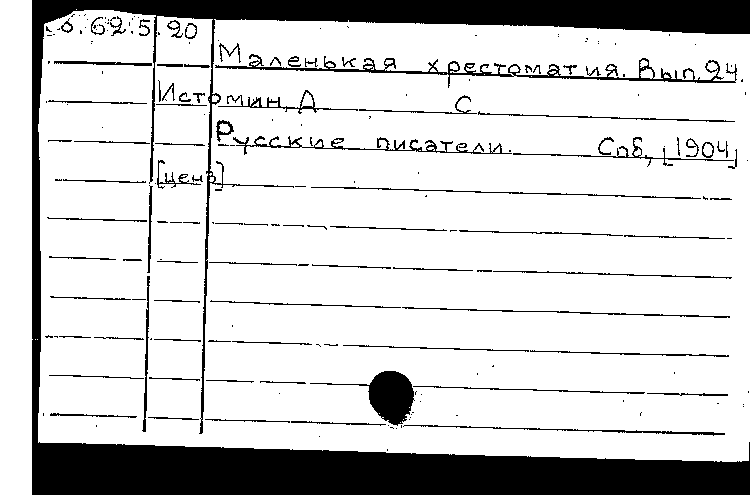 6.62.5.20
Маленькая хрестоматия. Вып. 24.
Истомин, А С
Русские писатели. Спб, [1904]
[ценз]